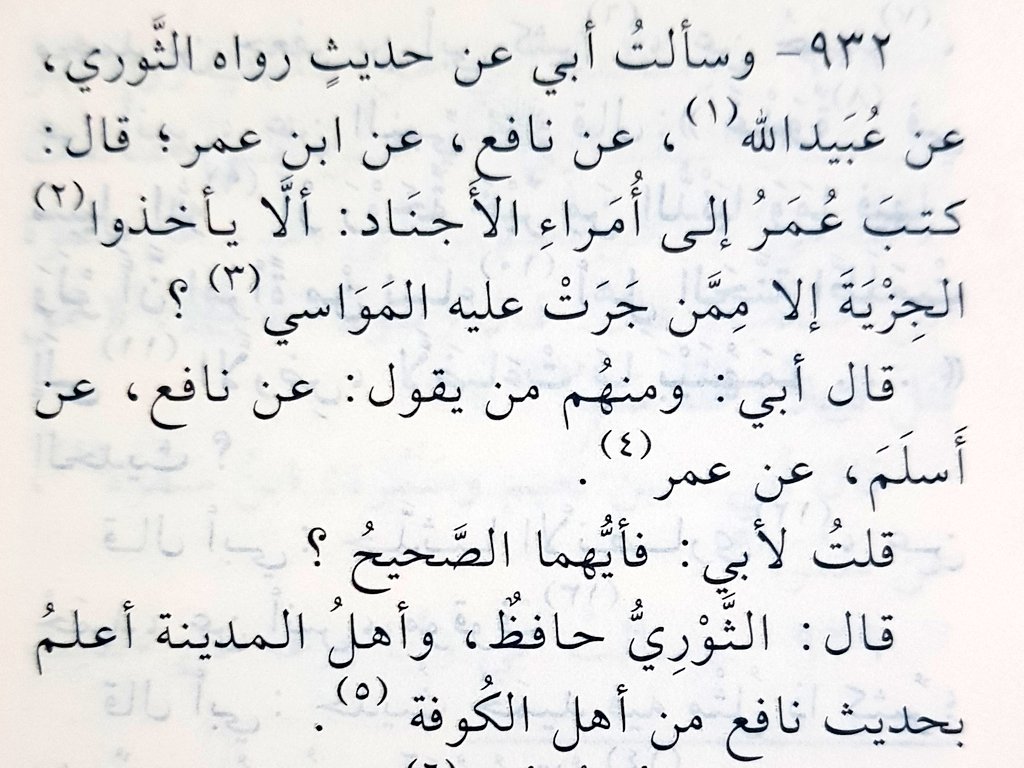 ٩٣٢= وسألتُ أبي عن حديثٍ رواه الثَّوري،
عن عُبَيدالله(١)، عن نافع، عن ابن عمر؛ قال:
كتبَ عُمَرُ إلى أُمَراءِ الأَجناد: ألَّا يأخذوا(٢)
الجِزْيَةَ إلا مِمَّن جَرَتْ عليه المَوَاسي(٣)؟
قال أبي: ومنهُم من يقول: عن نافع، عن
أَسلَمَ، عن عمر(٤).
قلتُ لأبي: فأيُّهما الصَّحيحُ؟
قال: الثَّوْرِيُّ حافظٌ، وأهلُ المدينة أعلمُ
بحديث نافع من أهل الكُوفة(٥).